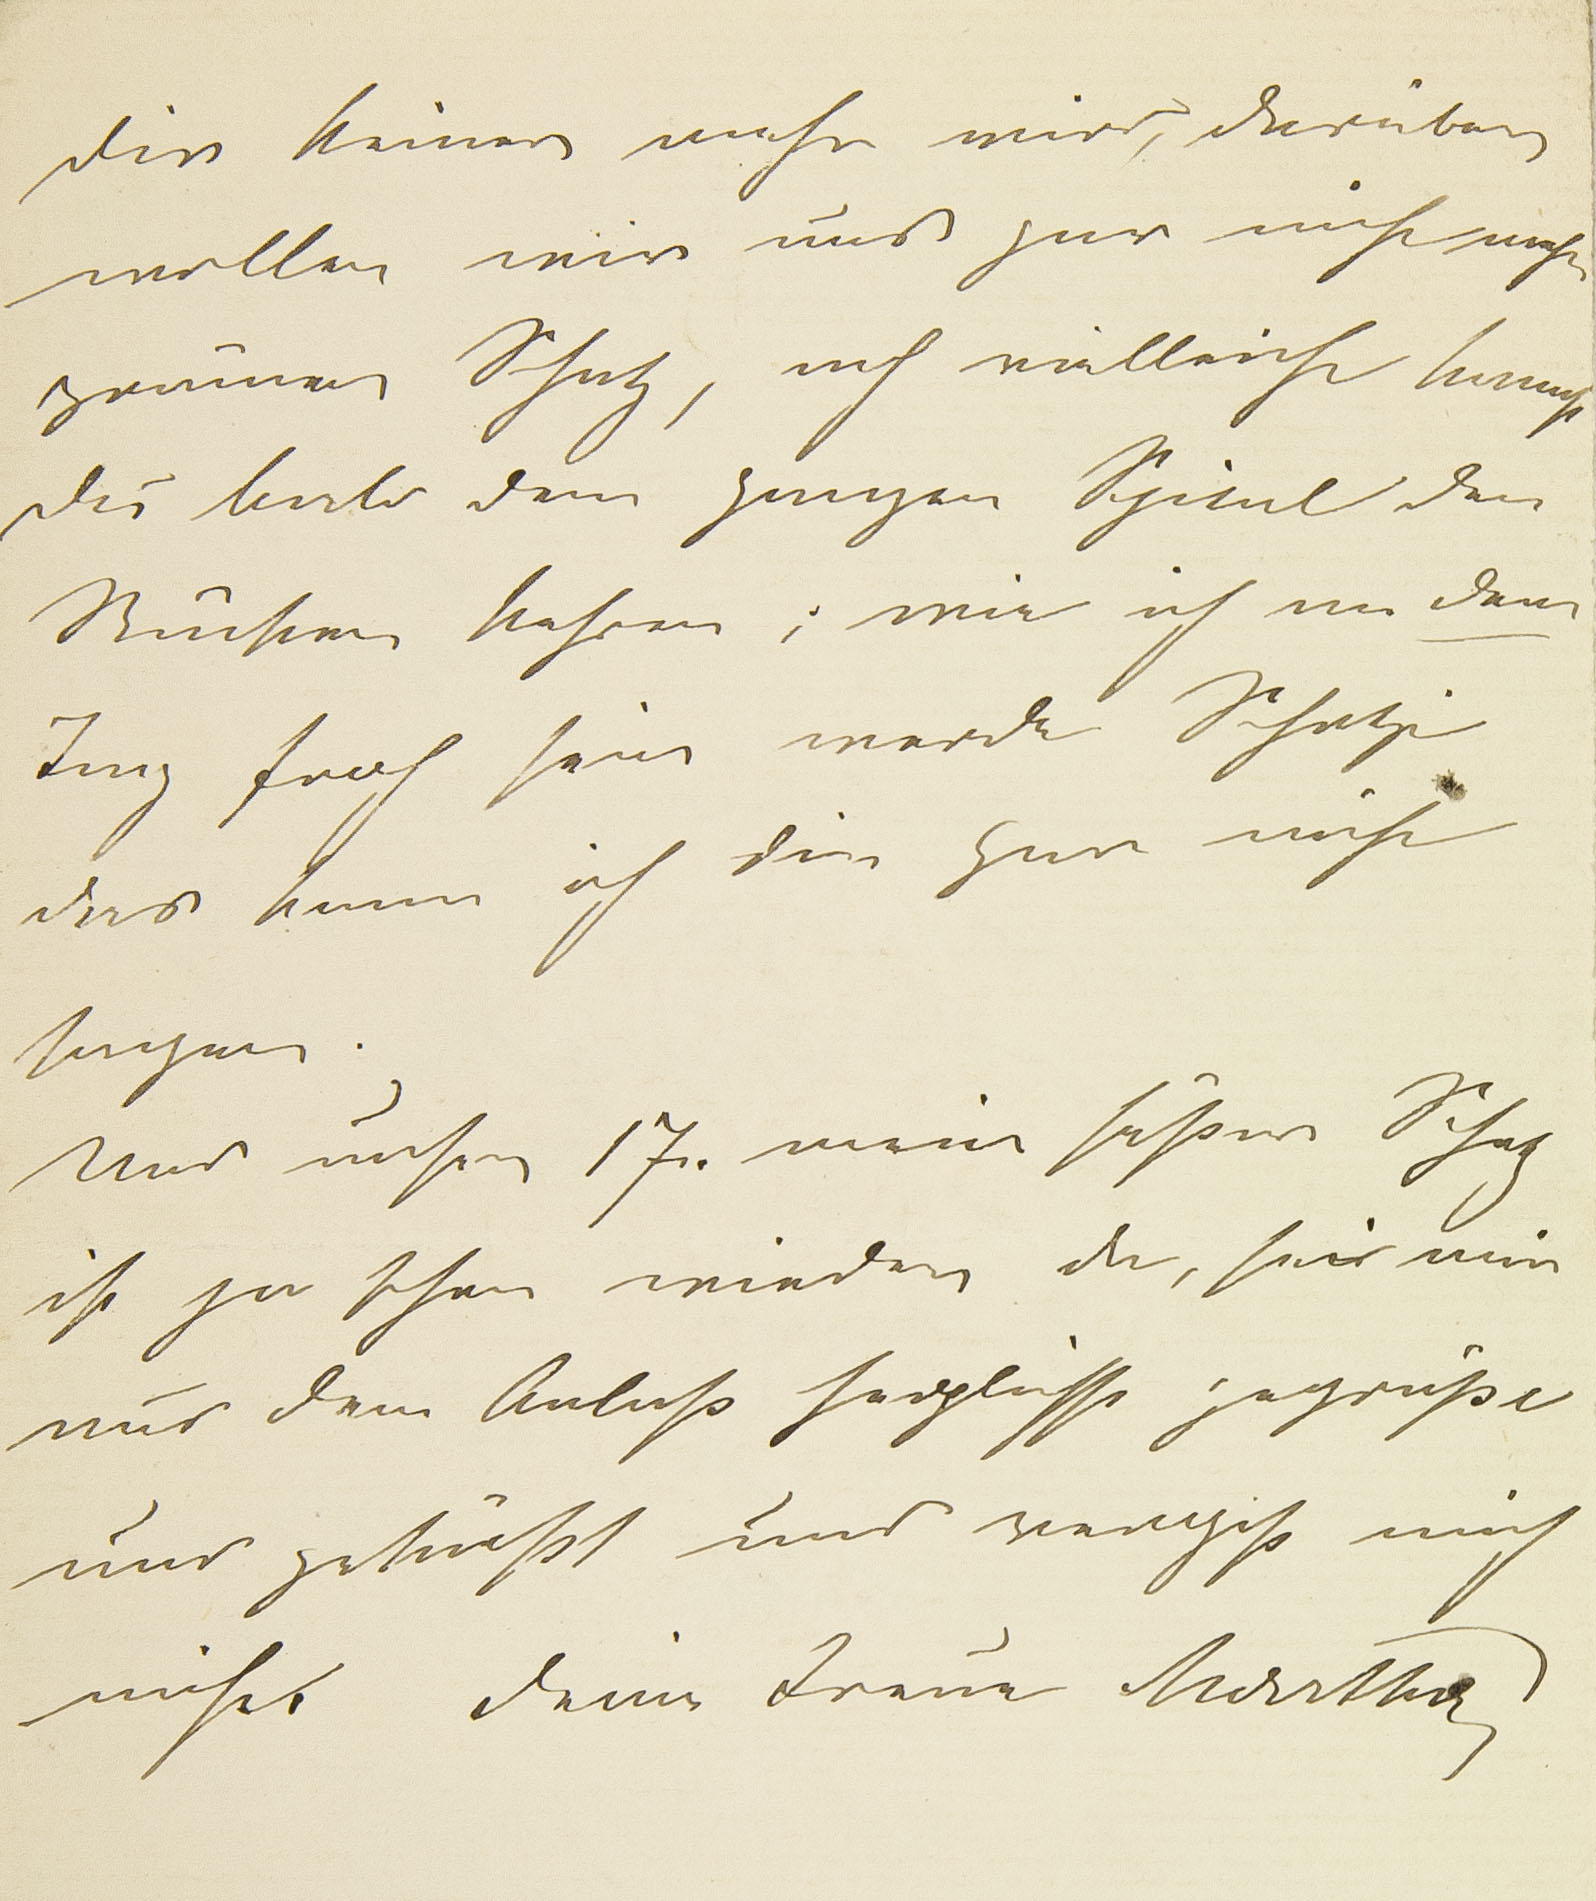 dir keiner mehr wird, darüber
wollen wir uns gar nicht mehr
grämen Schatz, ach vielleicht kannst
du bald dem ganzen Spital den
Rücken kehren; wie ich an dem
Tag froh sein werde Schatzi
das kann ich dir gar nicht
sagen.
Und unser 17. mein süßer Schatz
ist ja schon wieder da, sei mir
aus dem Anlaß herzlichst gegrüßt
und geküßt und vergiß mich
nicht. Deine treue Martha